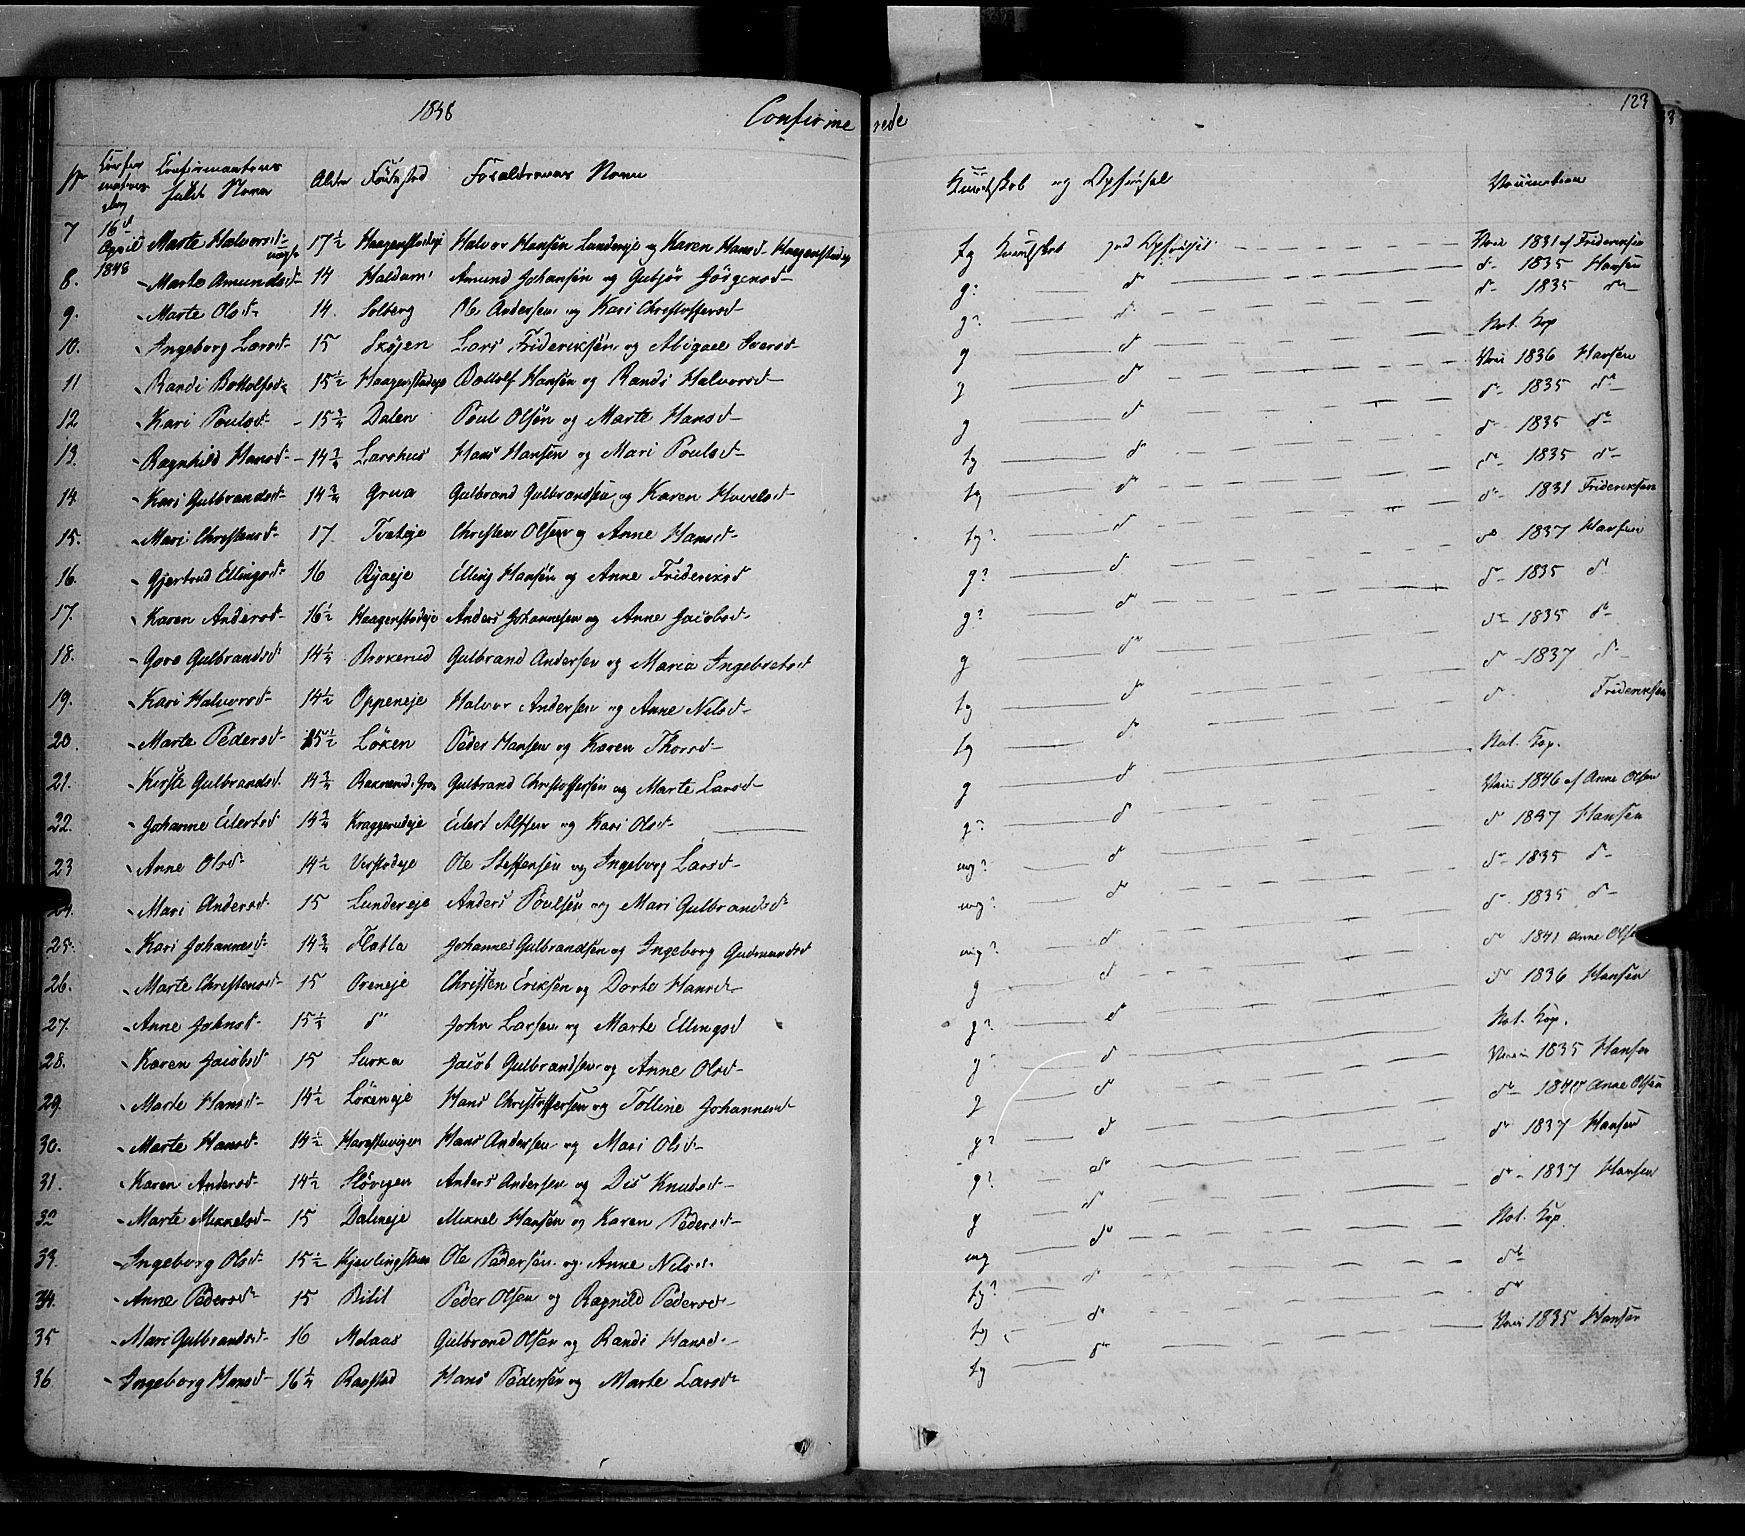 1848 Confirmerede 123
No Confirmations dag Confirmantens fulde Navn Alder Fødested Forældrenes Navne Kundskab og Opførsel Vaccination
7 16d April 1848 Marte Halvorsd 17½ Haagenstadeje Halvor Hansen Lundereje og Karen Hansd Haagenstadeje tg Kundskab god Opførsel Vacc 1831 af Frideriksen
8. Marte Amundsd 14 Haldum Amund Johansen og Gubjør Jörgensd g: d d 1835 Hansen
9. Marte Olsd 14. Solberg Ole Andersen og Kari Christoffersd g? d d 1835 d
10. Ingeborg Larsd 15 Skøjen Lars Frideriksen og Abigael Iversd g d Nat. Kop
11 Randi Bottolfsd 15½ Haagenstadeje Bottolf Hansen og Randi Halvorsd g d Vacc 1836 Hansen
12 Kari Poulsd 15¾ Dalen Poul Olsen og Marte Hansd g d d 1835 d
13. Ragnhild Hansd 14¾ Larshus Hans Hansen og Mari Poulsd tg d d 1835 d
14. Kari Gulbrandsd 14¾ Grua Gulbrand Gulbrandsen og Karen Hovelsd tg d d 1835 d
15. Mari Christensd 17. Tveteje Christen Olsen og Anne Hansd tg? d d 1831 Frideriksen
16. Gjertrud Ellingsd 16 Ryaeje Elling Hansen og Anne Frideriksd g? d d 1837 Hansen
17. Karen Andersd 16½ Haagenstadeje Anders Johannesen og Anne Jacobsd g? d d 1835 d
18. Goro Gulbrandsd 14½ Brokerud Gulbrand Andersen og Maria Ingebretsd g d d 1835 d
19. Kari Halvorsd 14½ Oppeneje Halvor Andersen og Anne Nilsd tg d d 1837 d
20. Marte Pedersd 15½ Löken Peder Hansen og Karen Thorsd tg d d Frideriksen
21. Kirsti Gulbrandsd 14¾ Gulbrand Christoffersen og Marte Larsd g d Nat. Kop.
22. Johanne Eilertsd 14¾ Kraggerudeje Eilert Alfsen og Kari Olsd g? d Vacc 1846 af Anne Olsen
23 Anne Olsd 14½ Ole Steffensen og Ingeborg Larsd mg? d d 1837 Hansen
24. Mari Andersd 15 Lundereje Anders Poulsen og Mari Gulbrandsd mg? d d 1835 d
25. Kari Johannesd 14¾ Flatla Johannes Gulbrandsen og Ingeborg Gudmundsd mg? d d 1835 d
26. Marte Christensd 15 Oreneje Christen Eriksen og Dorte Hansd g d d 1841 Anne Olsen
27. Anne Johnsd 15½ d John Larsen og Marte Ellingsd g? d d 1836 Hansen
28. Karen Jacobsd 15 Lurka Jacob Gulbrandsen og Anne Olsd g d Nat. Kop.
29. Marte Hansd 14½ Lökeneje Hans Christoffersen og Tolline Johannesd g d Vacc 1835 Hansen
30. Marte Hansd 14½ Harestuvigen Hans Andersen og Mari Olsd g? d d Anne Olsen
31. Karen Andersd 14½ Slövigen Anders Andersen og Dis Knudsd g? d d 1837 Hansen
32 Marte Mikkelsd 15 Dalineje Mikkel Hansen og Karen Pedersd g d d 1837 Hansen
33. Ingeborg Olsd 15½ Ole Pedersen og Anne Nilsd mg d Nat. Kop.
34. Anne Pedersd 15 Bilit Peder Olsen og Ragnild Pedersd tg? d d
35 Mari Gulbrandsd 16 Melaas Gulbrand Olsen og Randi Hansd tg d d
36 Ingeborg Hansd 16½ Ragstad Hans Pedersen og Marte Larsd tg d Vacc 1835 Hansen